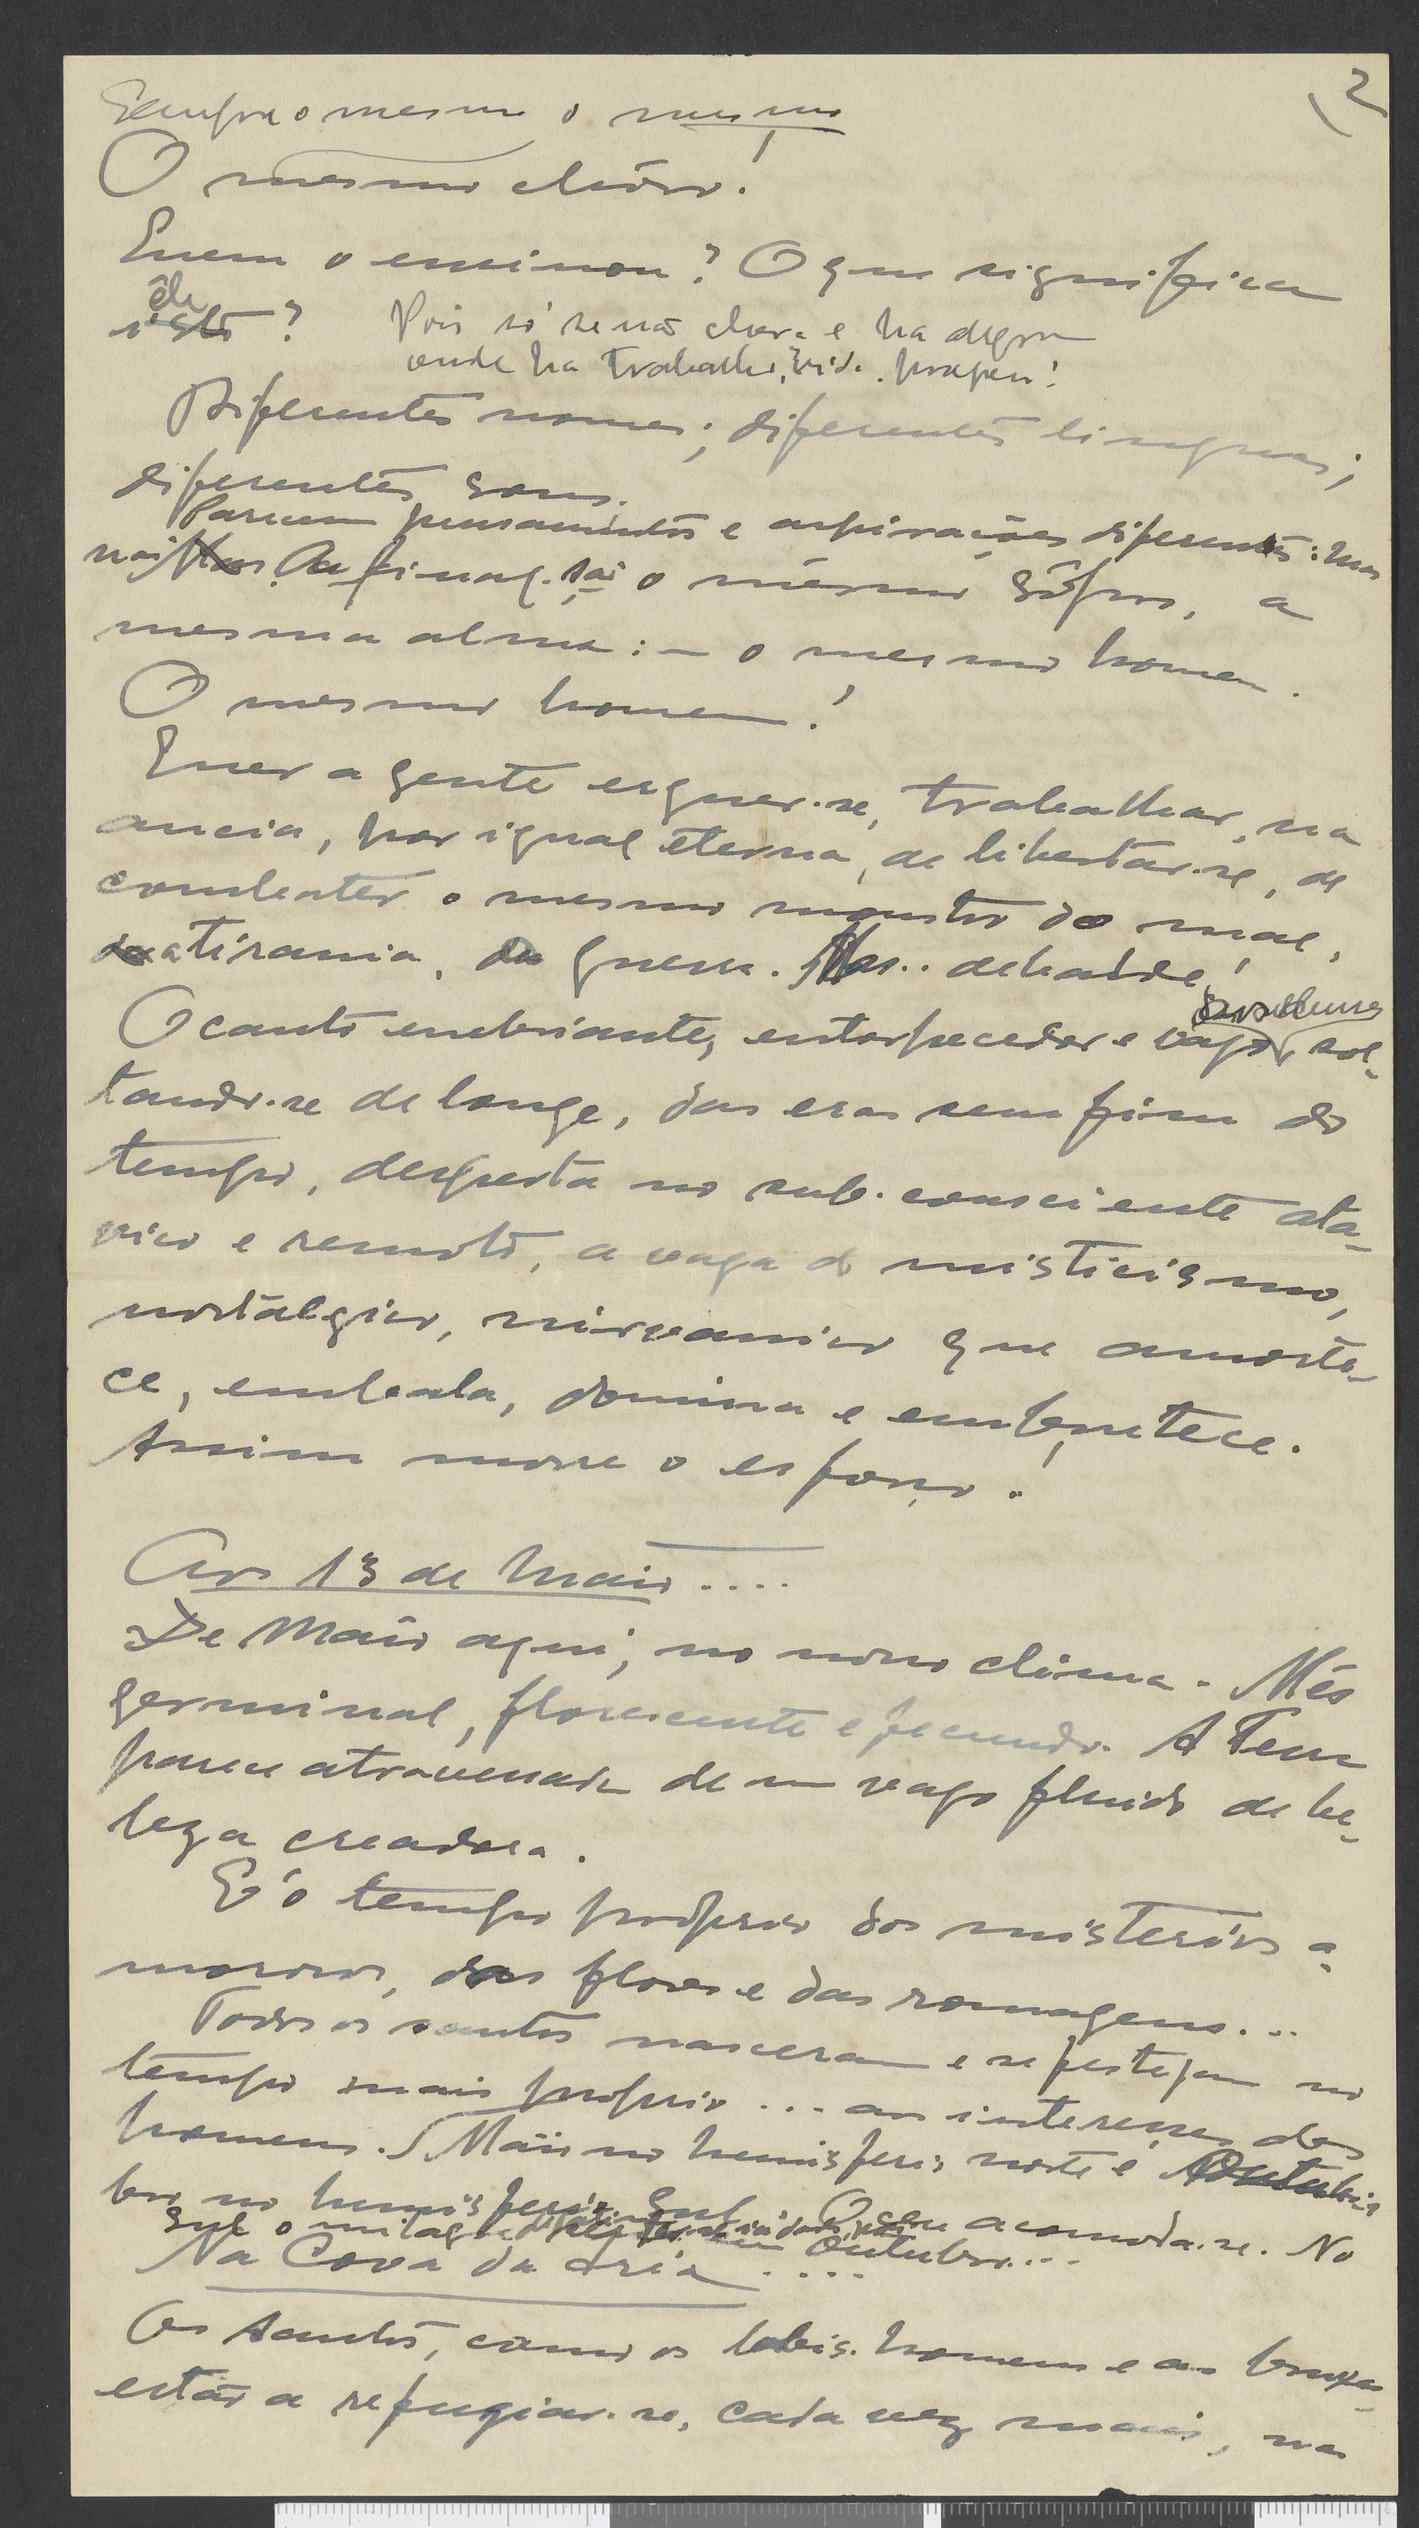 2
Sempre o mesmo o mesmo
O mesmo chôro!
Quem o ensinou? O que significa
êle
isto?
Pois só se não chora e ha alegria
onde ha trabalho, vida.
Diferentes nomes; diferentes linguas;
diferentes sons.
Parecem pensamentos e aspirações diferentes: mas
não. Afinal. sai o mesmo sôpro, a
mesma alma: — o mesmo homem.
O mesmo homem!
Quer a gente erguer-se, trabalhar, na
ancia, por igual eterna, de libertar-se, de
combater o mesmo monstro do mal,
a tirania, da guerra. Mas.. debalde!
O canto enebriante, entorpecedor e vago, sol-
tando-se de longe, das eras sem fim do
tempo, desperta no sub-consciente ata-
vico e remoto, a vaga do misticismo,
nostalgico, nirvanico que amorte-
ce, embala, domina e embrutece.
Assim morre o esforço!
Aos 13 de Maio....
De Maio aqui, no nosso clima. Mês
germinal, florescente e fecundo. A Terra
parece atravessada de um vago fluido de be-
leza creadora.
E' o tempo proprio dos misterios a-
morosos, das flores e das romagens...
Todos os santos nasceram e se festejam no
tempo mais proprio... aos interesses dos
homens. Maio no hemisferio norte e Outubro
no hemisferio Sul. O ceu acomoda-se. No
Sul o milagre em Outubro....
Na Cova da Iria....
Os Santos, como os lobis-homens e as bruxas
estão a refugiar-se, cada vez mais, nas